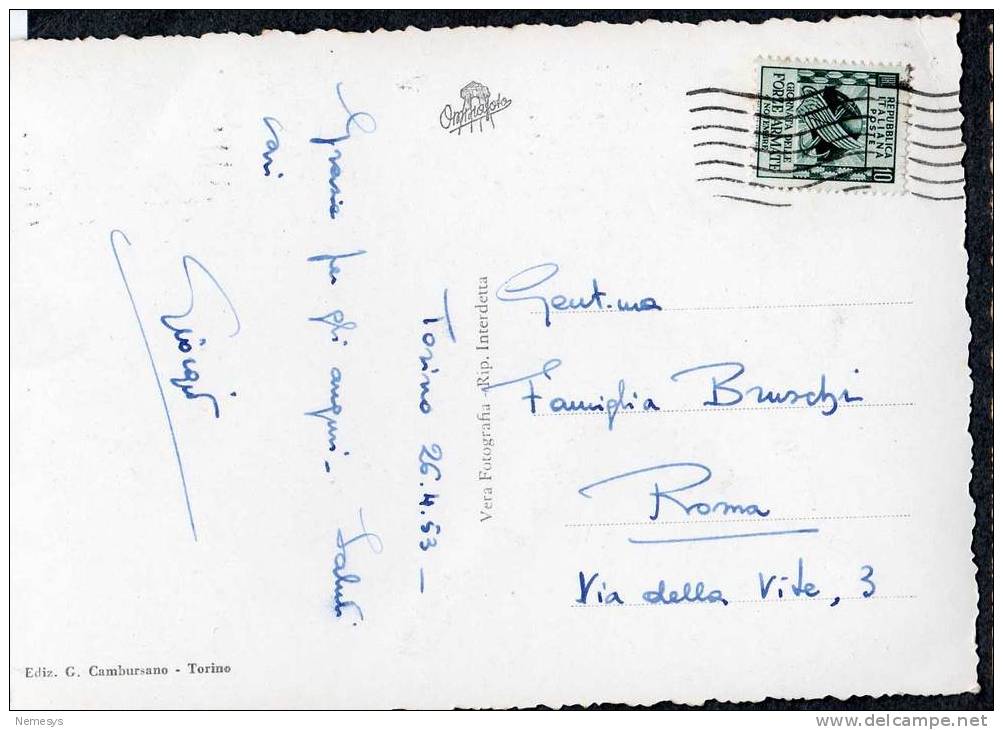 Torino 26.4.53 –
Grazie per gli auguri – Saluti
cari
Giorgio
Gent.ma
Famiglia Bruschi
Roma
Via della Vite, 3
Vera Fotografia - Rip. Interdetta
Ediz. G. Cambursano - Torino
REPUBBLICA
ITALIANA
POSTE
10
GIORNATA DELLE
FORZE ARMATE
4 NOVEMBRE
Nemesys
www.delcampe.net